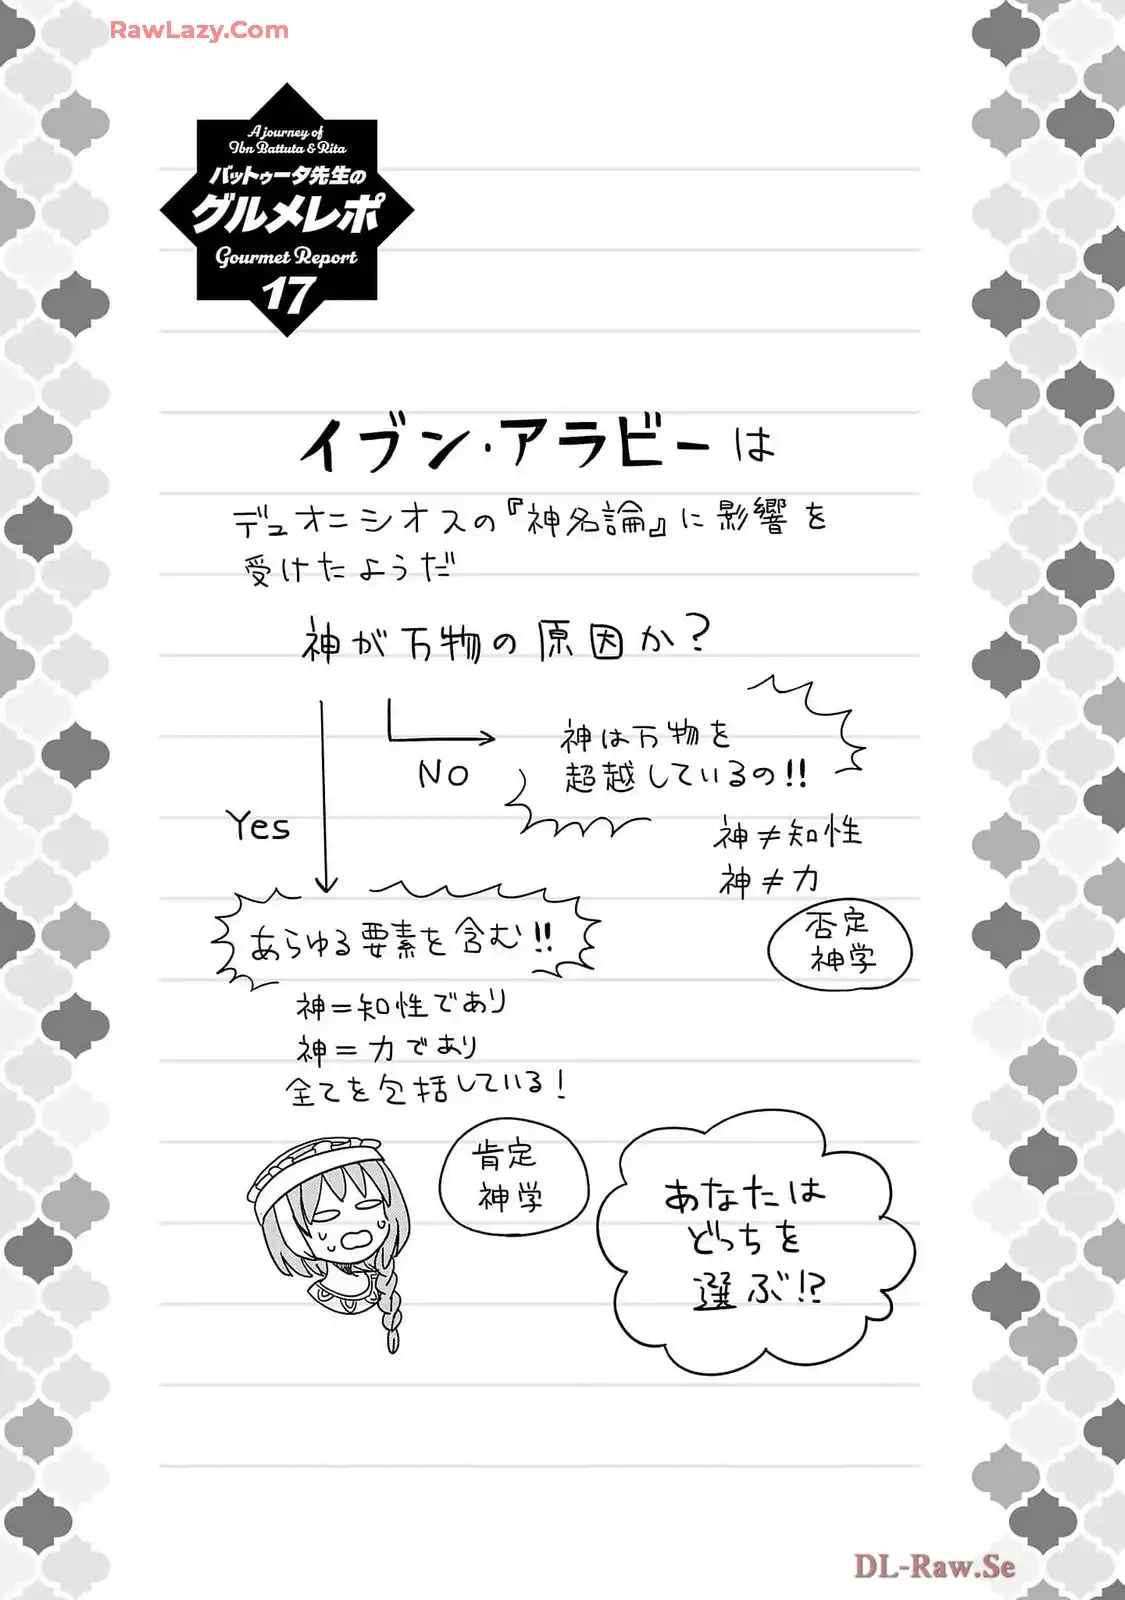 RawLazy.Com
A journey of
Ibn Battuta & Rita
バットゥータ先生の
グルメレポ
Gourmet Report
17
イブン・アラビーは
デュオニシオスの『神名論』に影響を
受けたようだ
神が万物の原因か?
NO
神は万物を
超越しているの!!
神≠知性
神≠力
否定
神学
Yes
あらゆる要素を含む!!
神=知性であり
神=力であり
全てを包括している!
肯定
神学
あなたは
どっちを
選ぶ!?
DL-Raw.Se